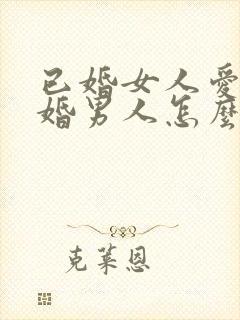 已婚女人愛
婚男人怎麼
克萊恩